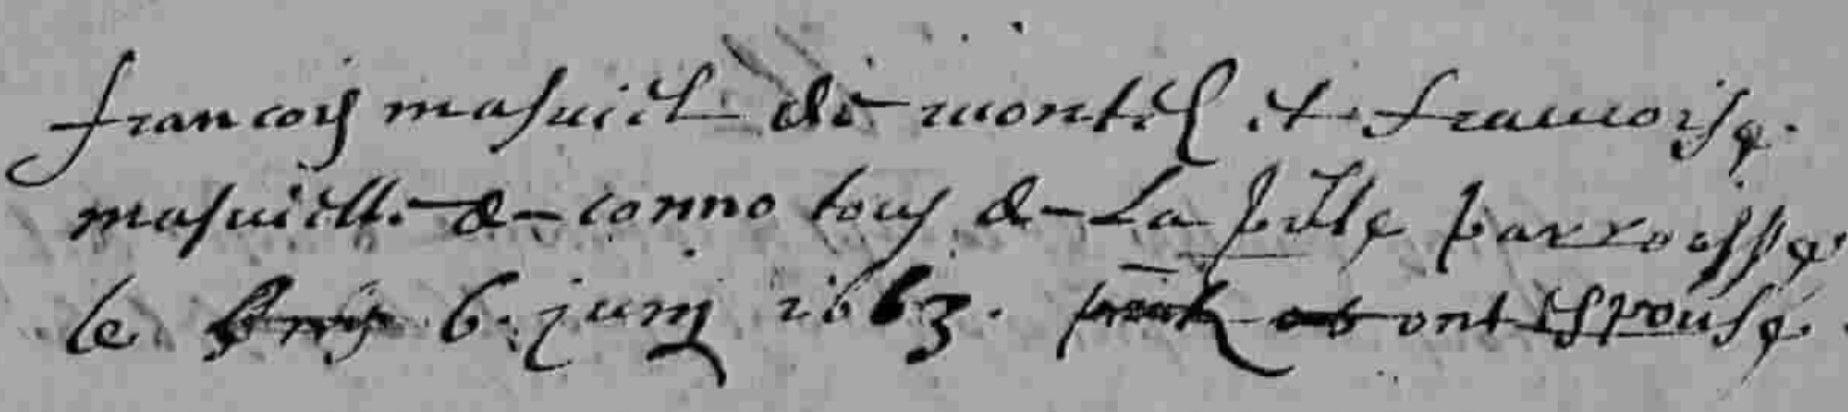 francois masuiel de montel et francoise.
masuielle. de conno tous de la ptte parroisse
le 6. juing 1663. ont espousé.